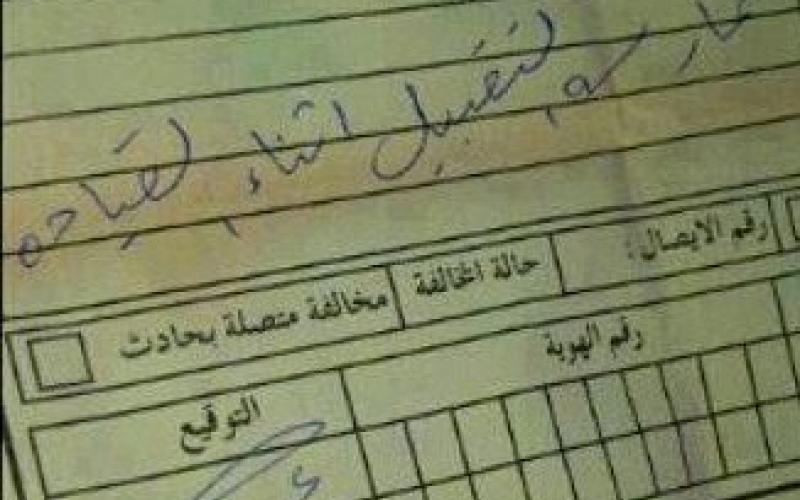 ممارسة التقبيل اثناء القياده
رقم الايصال :
حالة المخالفة
مخالفة متصلة بحادث
رقم الهوية
التوقيع